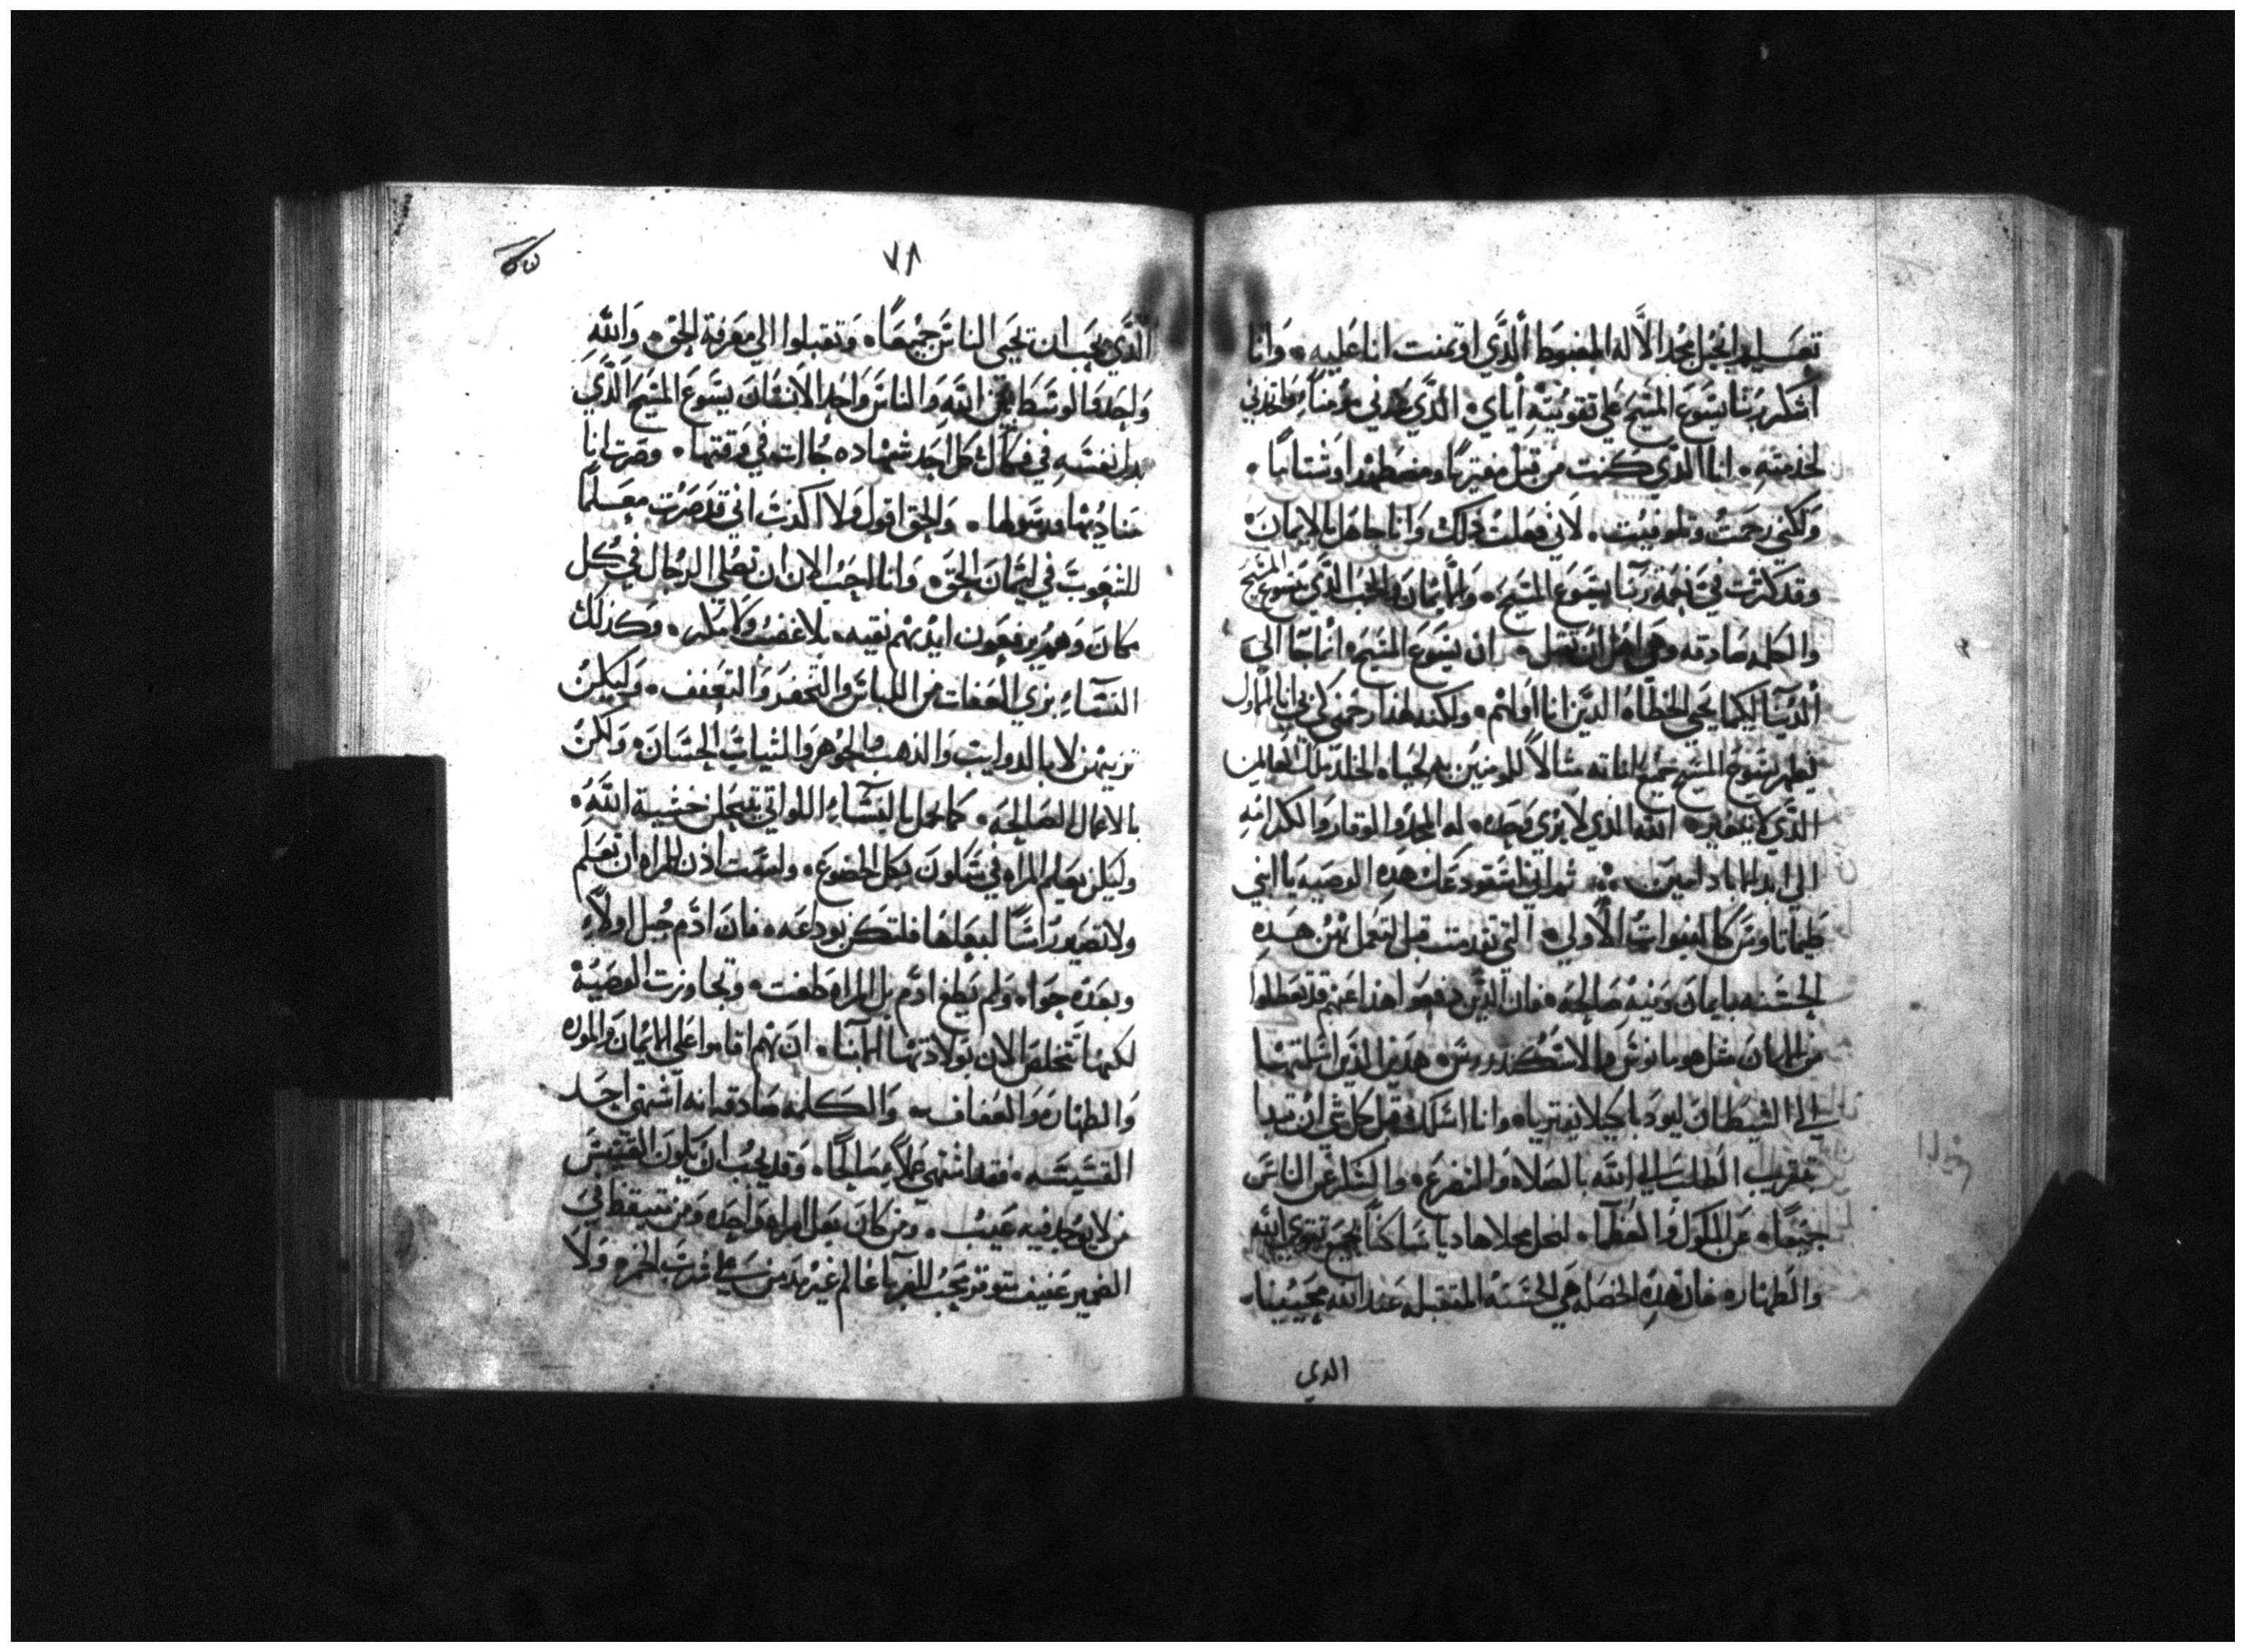 تعليم انجيل مجد الاله المغبوط الذي اوتمنت انا عليه • وانا
اشكر ربنا يسوع المسيح علي تقويته اياي • الذي عدني مؤمناً واتخدني
لخدمته • انا الذي كنت من قبل مفترياً ومضطهداً وشتاماً •
ولكني رحمت وتلوفيت • لاني فعلت ذلك وانا جاهل بالايمان •
وقد كثرت في نعمة ربنا يسوع المسيح • والايمان والحب الذي بيسوع المسيح
والكلمه صادقه وهي اهل ان تقبل • ان يسوع المسيح انما جا الي
الدنيا ليكما يحيي الخطاه الدين انا اولهم • ولكنه لهذا رحمني لكي بي انا الاول
يظهر يسوع المسيح جميع اناته مثالاً للمومنين به لحياه الخلد ملك العالمين
الذي لا يتغير • الله الذي لا يري وحده • له المجد والوقار والكرامه
الي ابد الاباد امين • ثم اني استودعك هذه الوصيه يا ابني
طيماتاوس كالنبوات الاولي • التي تقدمت قبل لتعمل بهن هذه
الحسنه بايمان ونيه صالحه • فان الذين دفعوا هذا عنهم قد تعطلوا
من الايمان مثل هومانوس والاسكندروس • هذين الذين اسلمتهما
الي الشيطان ليودبا كيلا يفتريا • وانا اسلك قبل كل شي ان تبدا
بتقريب الطلب الي الله بالصلاه والتضرع • والشكر عن الناس
جميعاً • عن الملوك والعظما • لنحل محلا هاديا ساكناً بجميع تقوي الله
والطهاره • فان هذه الخصله هي الحسنه المتقبله عند الله محيينا •
الدي
٧٨
الذي يحب ان تحيى الناس جميعاً • وتقبلوا الي معرفة الحق • والله
واحد هو الوسط بين الله والناس واحد الانسان يسوع المسيح الذي
بدل نفسه في فكاك كل احد شهاده جات في وقتها • وصرت انا
مناديها ورسولها • والحق اقول ولا اكذب اني قد صرت معلماً
للشعوب في ايمان الحق • وانا احب الان ان تصلي الرجال في كل
مكان وهم يرفعون ايديهم نقيه • بلا غضب ولا تفكر • وكذلك
النساء بزي العفات من اللباس والتخفر والتعفف • وليكن
تزينهن لا بالدوايب والذهب والجوهر والثياب الحسان • ولكن
بالاعمال الصالحه • كما يحل بالنساء اللواتي ينتحلن خشية الله •
وليكن تعليم المراه في سكون بكل الخضوع • ولست اذن للمراه ان تعلم
ولا تصير رأساً لبعلها فلتكن بوداعه • فان ادم جبل اولاً
وبعده حوا • ولم يطغ ادم بل المراه طغت • وتجاوزت الوصية
لكنها تتخلص الان بولادتها الابنا • ان هم اقاموا علي الايمان والموده
والطهاره والعفاف • والكلمه صادقه انه ان اشتهى احد
القسيسه • فقد اشتهى عملاً صالحاً • وقد يجب ان يكون القسيس
من لا يوجد فيه عيب • ومن كان بعل امراه واحده ومن متيقظ في
الضمير عفيف متوقر محب للغربا عالم غير مدمن علي شرب الخمر • ولا